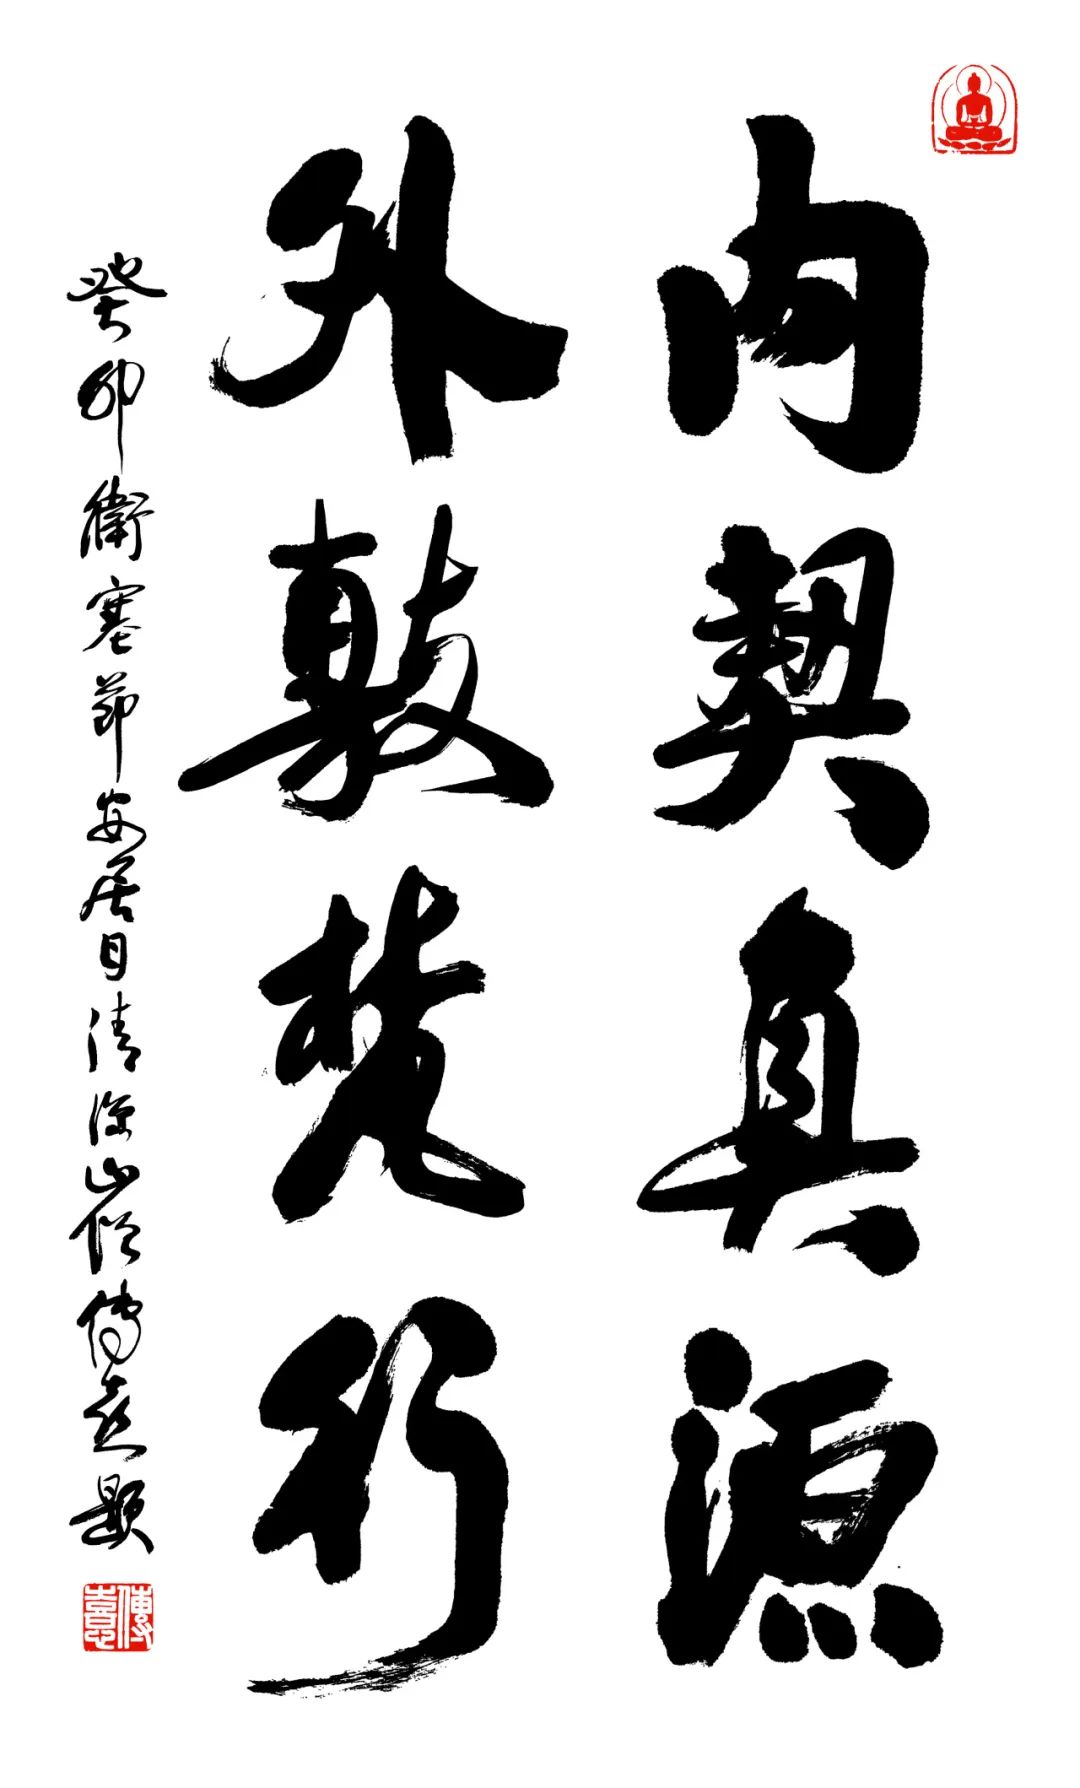 内契真源
外敦梵行
癸卯衛塞節安居日清涼山僧傳意題
傳意